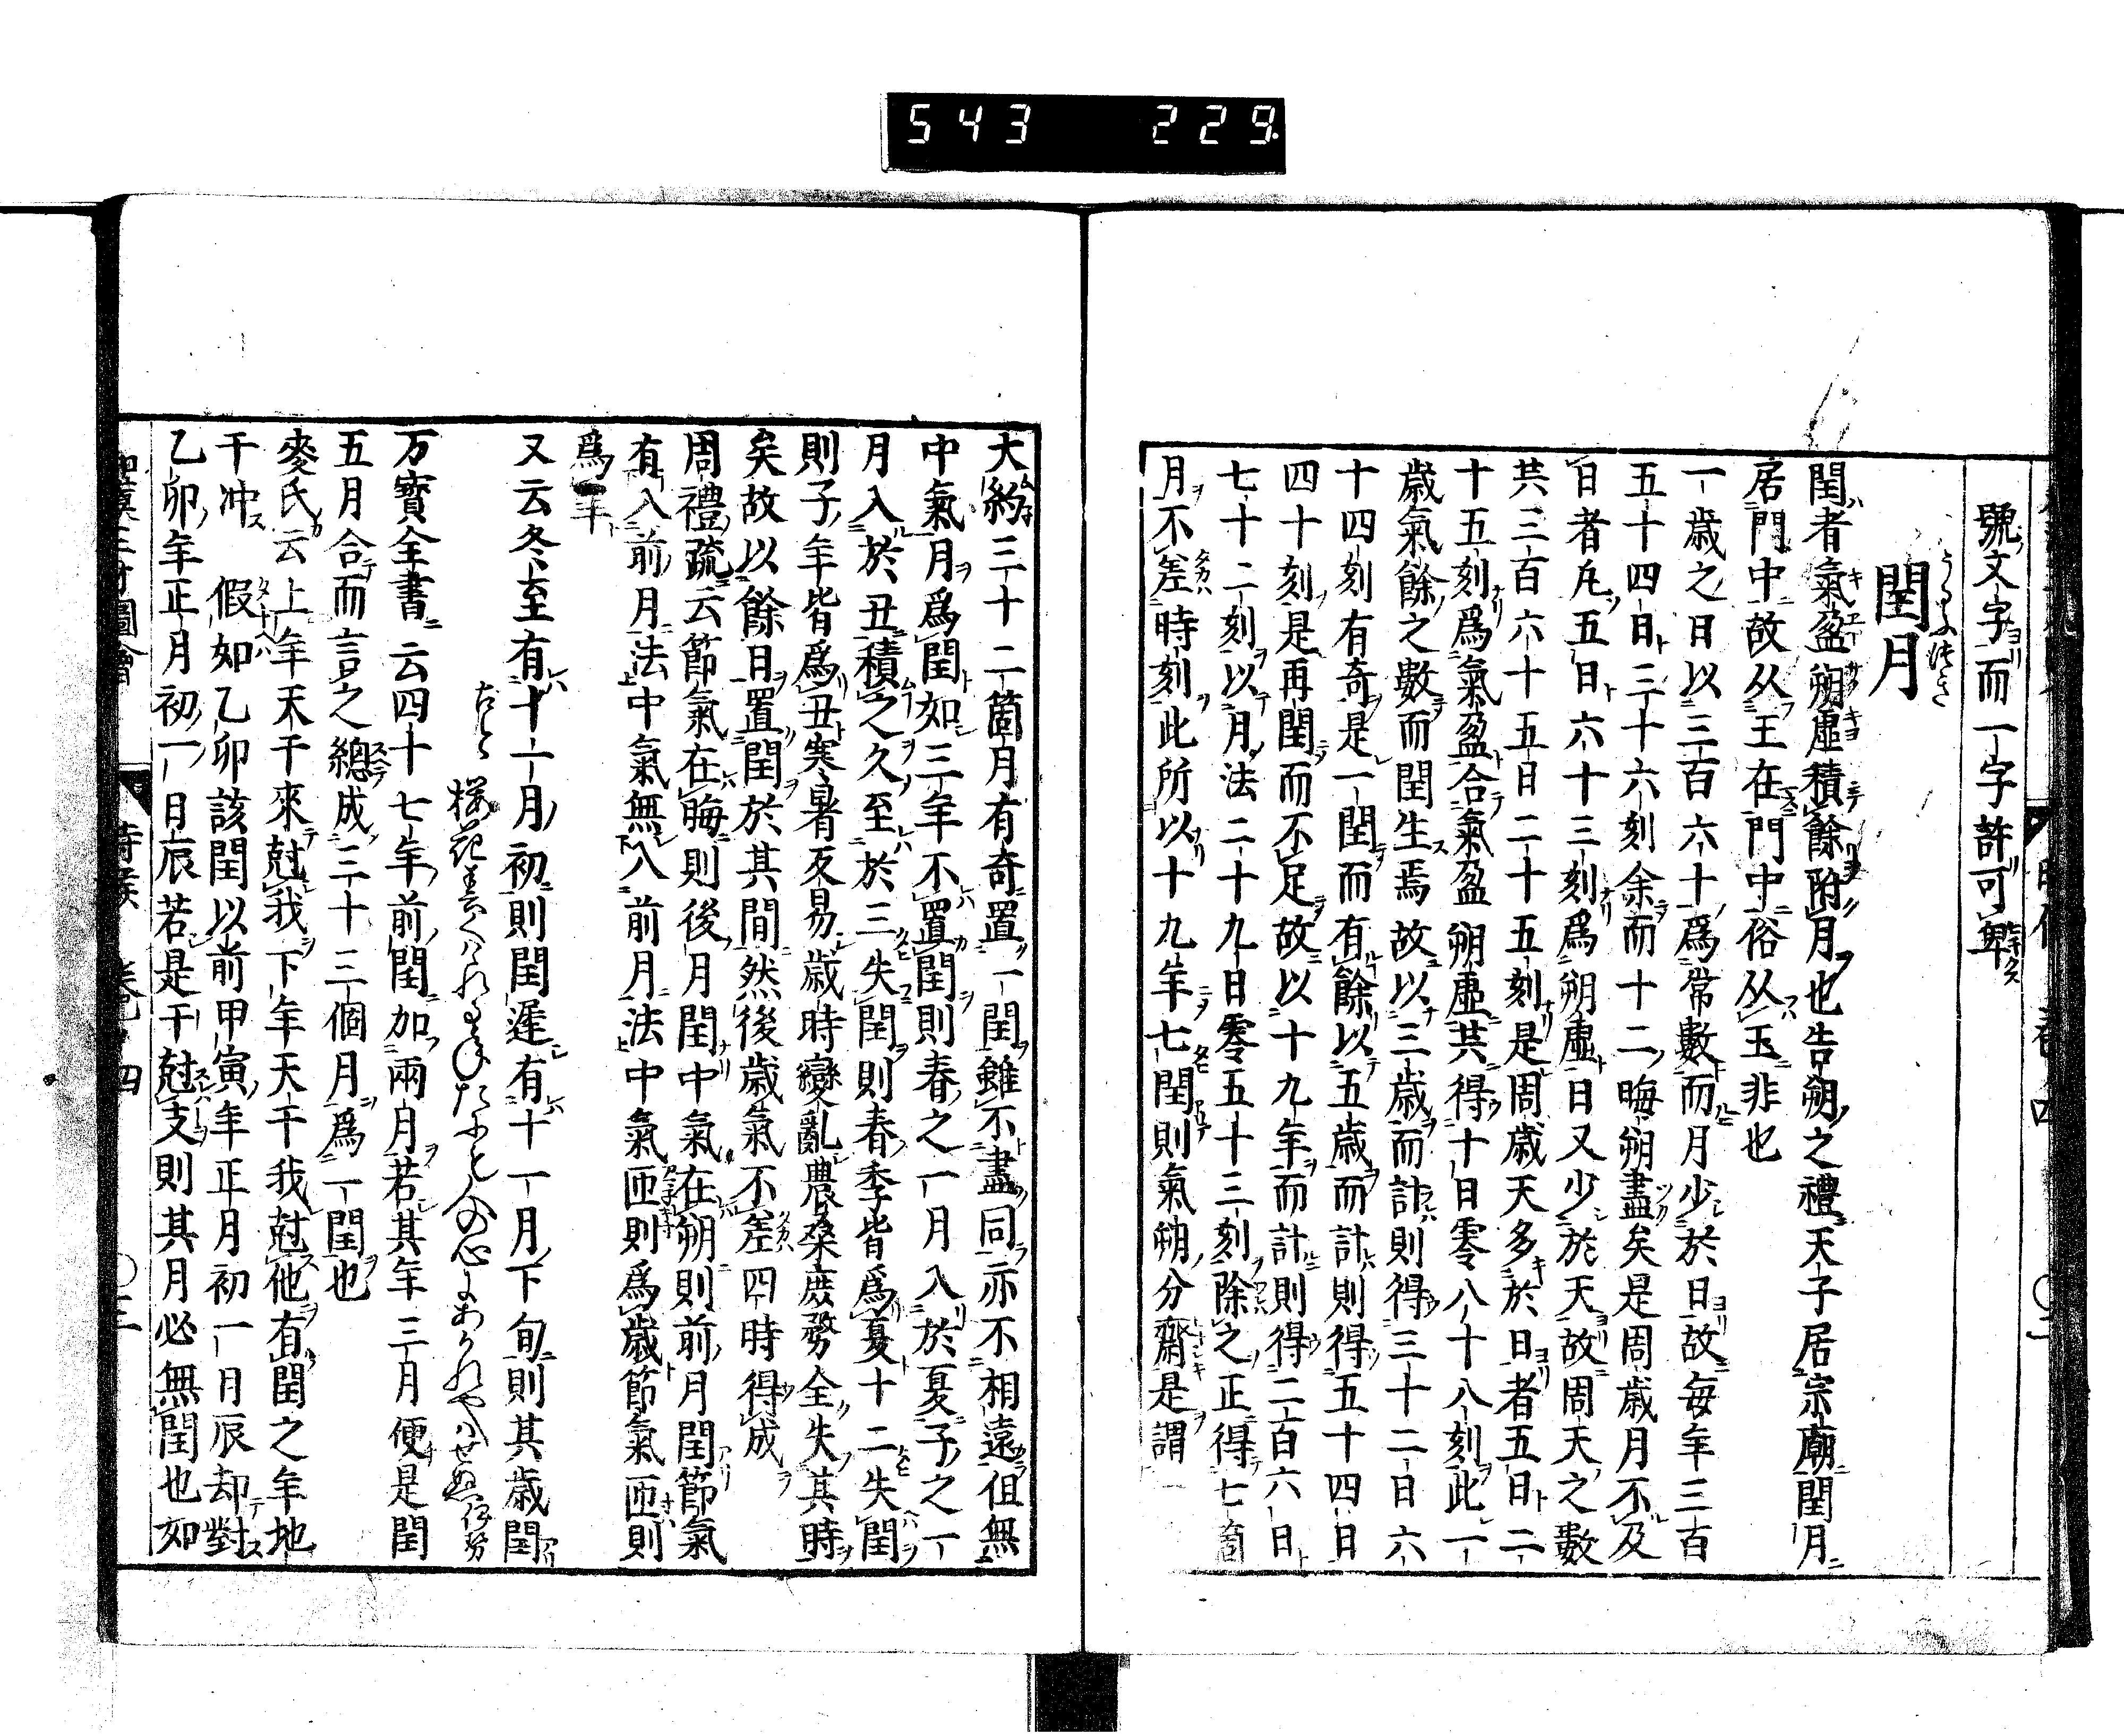 543 229
號文字而一字許可畧
うるふ
閏月
閏者氣盈朔虛積餘附月也告朔之禮天子居宗廟閏月
居門中故从王在門中俗从玉非也
一歲之日以三百六十爲常數而月少於日故每年三百
五十四日三十六刻余而十二晦朔盡矣是周歲月不及
日者凡五日六十三刻爲朔虛日又少於天故周天之數
共三百六十五日二十五刻是周歲天多於日者五日二
十五刻爲氣盈合氣盈朔虛共得十日零八十八刻此一
歲氣餘之數而閏生焉故以三歲而計則得三十二日六
十四刻有奇是一閏而有餘以五歲而計則得五十四日
四十刻是再閏而不足故以十九年而計則得二百六日
七十二刻以月法二十九日零五十三刻除之正得七箇
月不差時刻此所以十九年七閏則氣朔分齊是謂
大約三十二箇月有奇置一閏雖不盡同亦不相遠但無
中氣月爲閏如三年不置閏則春之一月入於夏子之一
月入於丑積之久至於三失閏則春季皆爲夏十二失閏
則子年皆爲丑寒暑反易歲時變亂農桑庶務全失其時
矣故以餘日置閏於其間然後歲氣不差四時得成
周禮疏云節氣在晦則後月閏中氣在朔則前月閏節氣
有入前月法中氣無入前月法中氣匝則爲歲節氣匝則
爲年
又云冬至有十一月初則閏遲有十一月下旬則其歲閏
桜花春くはれる年たにも人の心にあかれやはせぬ 伊勢
万寶全書云四十七年前閏加兩月若其年三月便是閏
五月合而言之總成三十三個月爲一閏也
麥氏云上年天干來尅我下年天干我尅他有閏之年地
干冲 假如乙卯該閏以前甲寅年正月初一日辰却對
乙卯年正月初一日辰若是干尅支則其月必無閏也如
時候 四